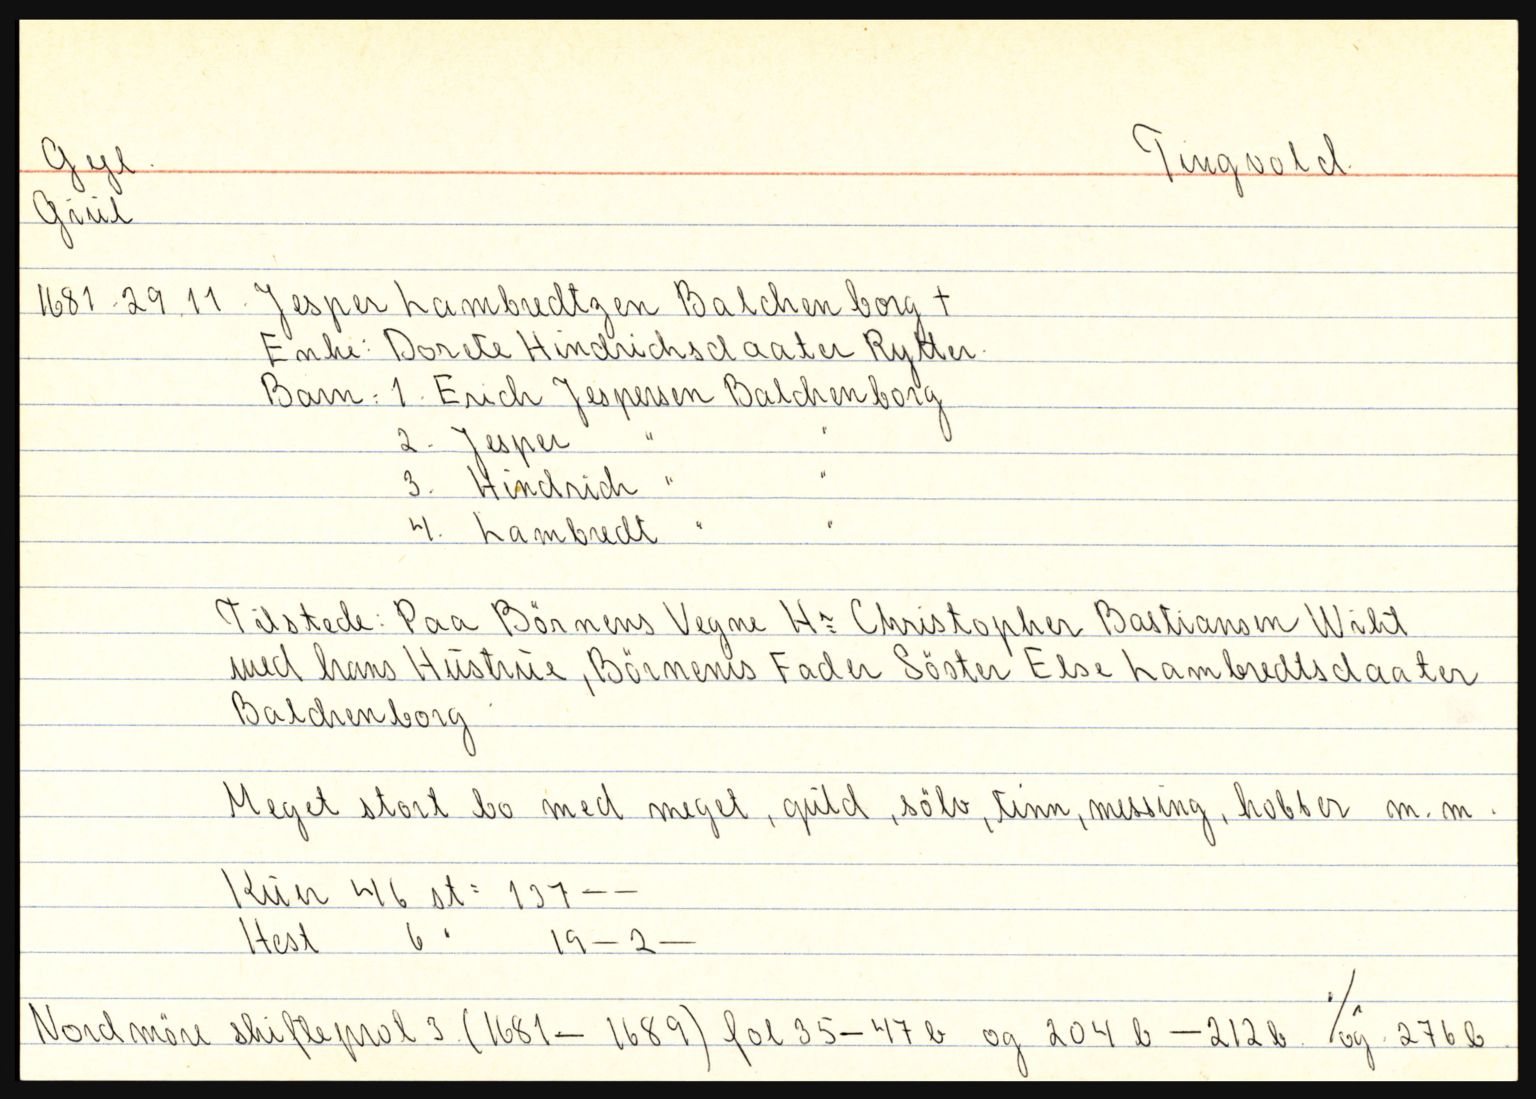 Gyl. Tingvold.
Giül
1681 29.11. Jesper Lambredtzen Balchenborg †
Enke: Dorete Hindrichsdaater Rytter.
Barn: 1. Erich Jespersen Balchenborg
2. Jesper " "
3. Hindrich " "
4. Lambredt " "
Tilstede: Paa Börnens Vegne Hr: Christopher Bastiansen Wibt
med hans Hüstrüe, Börnenis Fader Söster Else Lambredtsdaater
Balchenborg.
Meget stort bo med meget, güld, sölv, tinn, messing, kobber m.m.
Küer 46 st: 137 — —
Hest 6 " 19 — 2 —
Nordmöre skifteprot 3. (1681 — 1689) fol 35 — 47b og 204b — 212b. ./. og 276b.